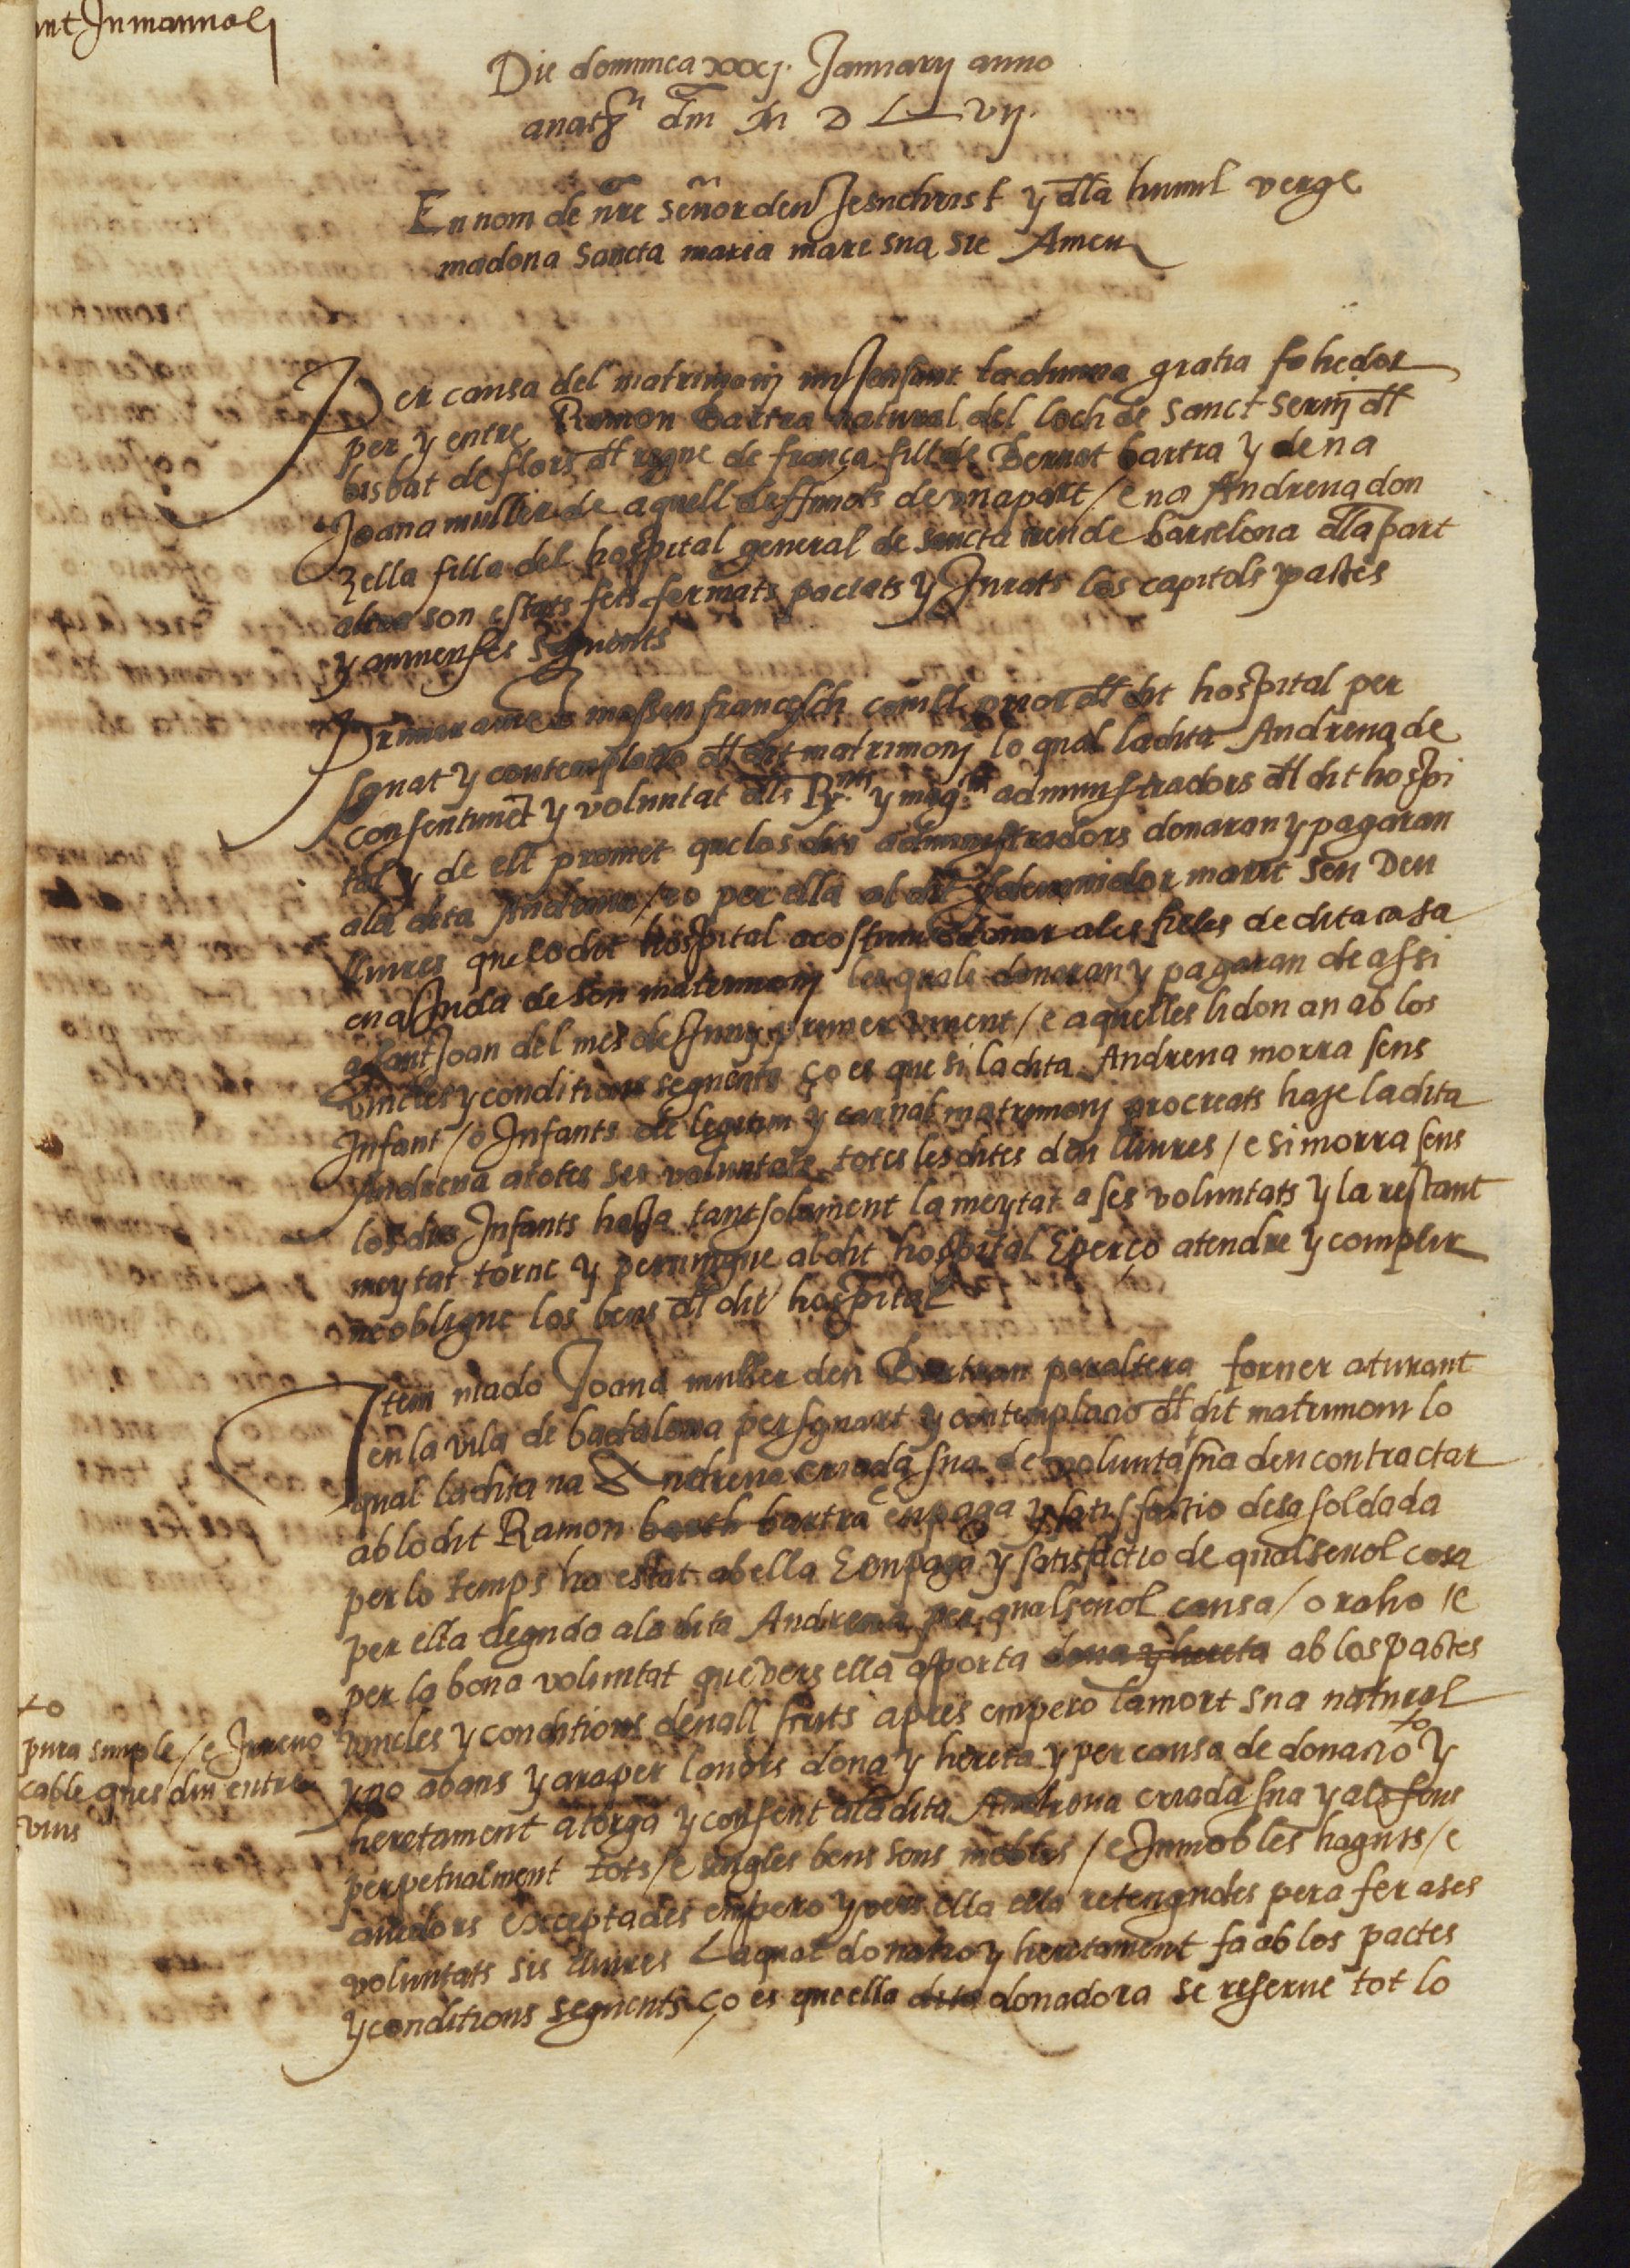 ant Inmannolj
Die dominica xxxj. Januarij anno
a nat.e dm M D L vij.
En nom de nre señor deu Jesuchrist y dla humil verge
madona sancta maria mare sua sie Amen
Per causa del matrimonj mijensant la divina gratia fahedor
per y entre Ramon bartra natural del loch de sanct serni dl
bisbat de flors dl regne de frança fill de Bernat bartra y de na
Joana muller de aquell deffuncts de una part / e na Andreua don
zella filla del hospital general de sancta creu de barcelona dla part
altra son estats fets fermats pactats y Jurats los capitols pactes
y auinenses seguents
Primerament mossen francesch comill prior dl dit hospital per
sguat y contemplatio dl dit matrimonj lo qual la dita Andreua de
consentimet y voluntat dls Rts y magchs administradors dl dit hospi
tal y de ell promet que los dits administradors donaran y pagaran
ala dita Andreua / ço per ella al dit sdeuenidor marit seu Deu
lliures que lo dit hospital acostuma donar ales filles de dita casa
en aJuda de son matrimonj les quals donaran y pagaran de assi
a sant Joan del mes de Juny primer vinent / e aquelles li donan ab los
vincles y conditions seguents ço es que si la dita Andreua morra sens
Infant / o Infants de legitim y carnal matrimonj procreats haje la dita
Andreua a totes ses voluntats totes les dites deu lliures / e si morra sens
los dits Infants haja tantsolament la meytat a ses voluntats y la restant
meytat torne y peruingue al dit hospital E per ço atendre y complir
ne obligue los bens dl dit hospital
Item mado Joana muller den Bertran peraltera forner aturant
en la vila de badalona per sguart y contemplacio dl dit matrimoni lo
qual la dita na Andreua criada sua de volunta sua deu contractar
ab lo dit Ramon barth bartra e en paga y satisfactio dela soldada
per lo temps ha estat ab ella E en paga y satisfactio de qualseuol cosa
per ella deguda ala dita Andreua per qualseuol causa / o raho / e
per la bona voluntat que vers ella aporta dona y hereta ab los pactes
vincles y conditions deuall scrits apres empero la mort sua natural
y no abans y ara per lauors dona y hereta y per causa de donatio y
heretament atorga y consent ala dita Andreua criada sua y als seus
perpetualment tots / e sengles bens seus mobles / e Immobles haguts / e
auedors exceptades empero y vers ella ella retengudes pera fer a ses
voluntats sis lliures La qual donatio y heretament fa ab los pactes
y conditions seguents ço es que ella dita donadora se reserue tot lo
pura simple / e Irreuo
cable ques diu entre
vius